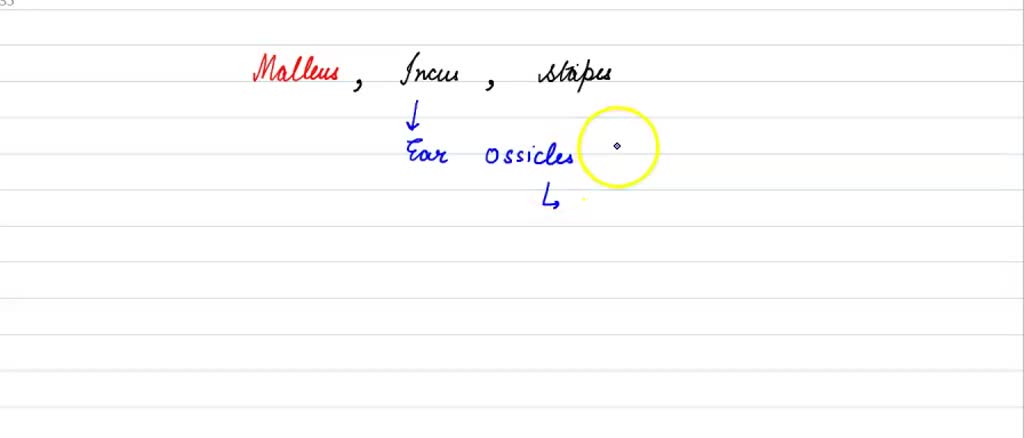 35
Malleus, Incus, stapes
↓
Ear ossicles
↳